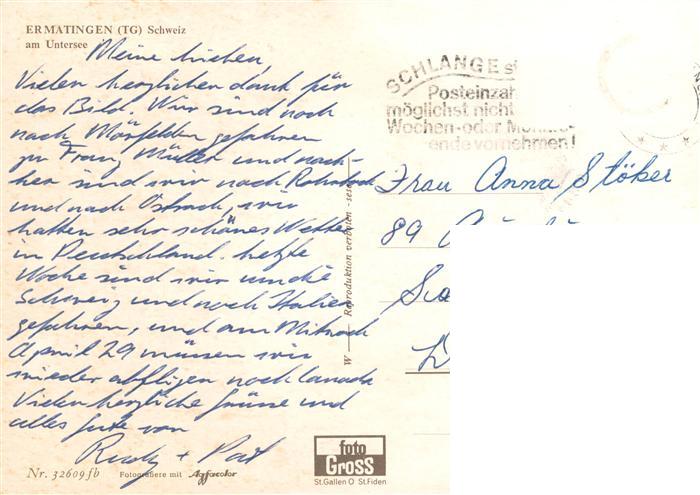 ERMATINGEN (TG) Schweiz
am Untersee
Meine Lieben,
Vielen herzlichen dank für
das Bild. Wir sind noch
nach Mörfelden gefahren
zu Franz Müller und nach-
her sind wir nach
und nach Ostrach, wir
hatten sehr schönes Wetter
in Deutschland. Letzte
Woche sind wir um die
Schweiz und nach Italien
gefahren, und am Mitwoch
April 29 müsen wir
wieder abfligen nach Canada
Vielen herzliche Grüsse und
alles gute von
Rudy + Pat
Nr. 32609 fb Fotografiere mit Agfacolor
W — Reproduktion verboten
SCHLANGE
Posteinzah
möglichst nicht
Wochen- oder
ende vornehmen!
Frau Anna Stöker
89
foto
GROSS
St.Gallen O St.Fiden